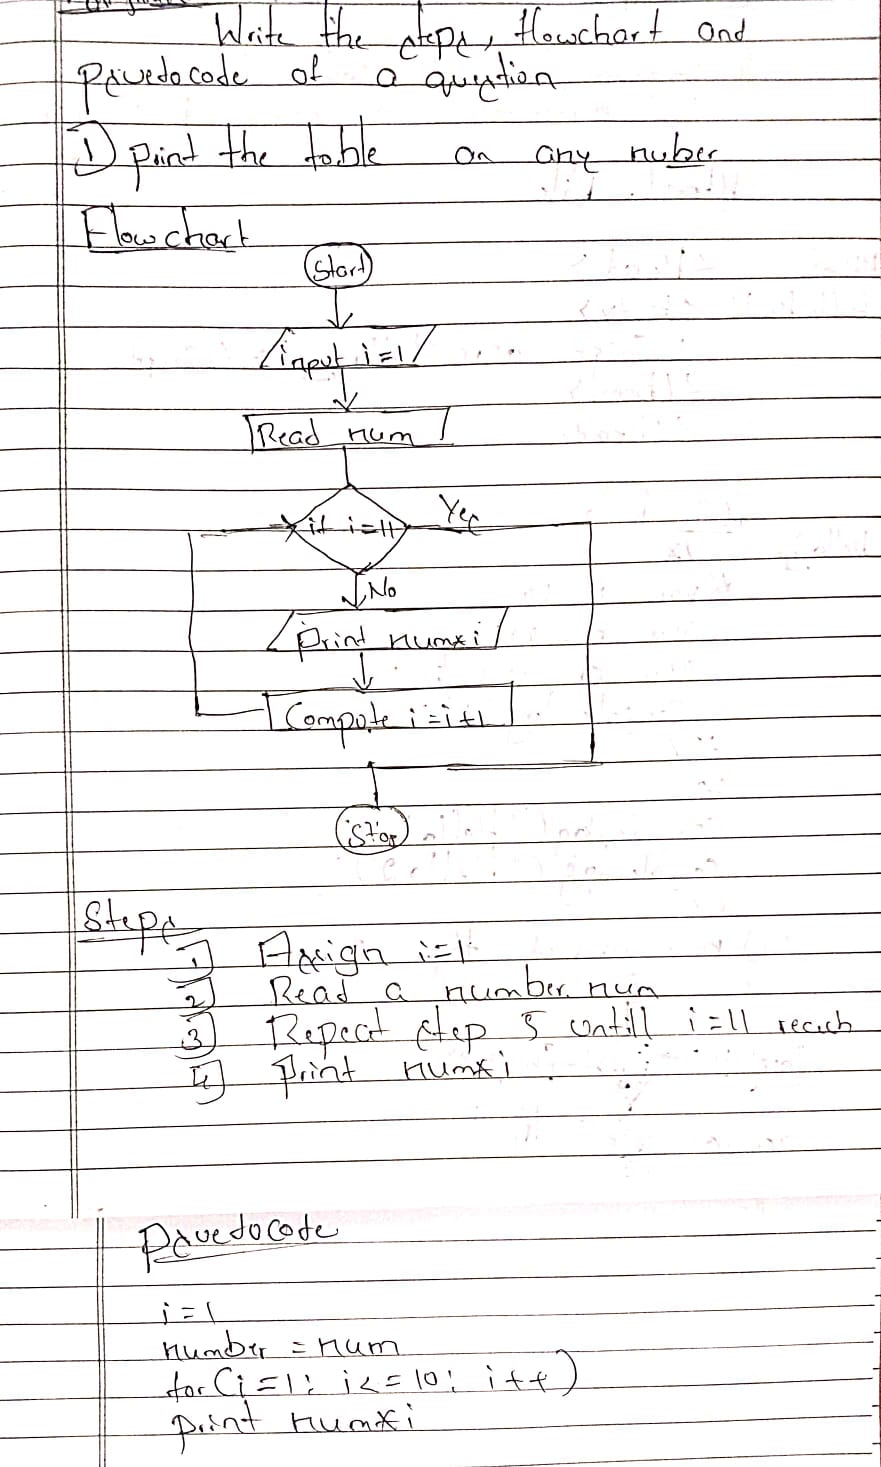 Write the steps, flowchart and
Psuedocode of a question
1) print the table on any nuber
Flowchart
Start
input i=1
Read num
if i=11
Yes
No
Print num*i
Compute i=i+1
Stop
Steps
1] Assign i=1
2] Read a number num
3] Repeat step 5 untill i=11 reach
4] Print num*i
Psuedocode
i=1
number = num
for(i=1; i<=10; i++)
print num*i